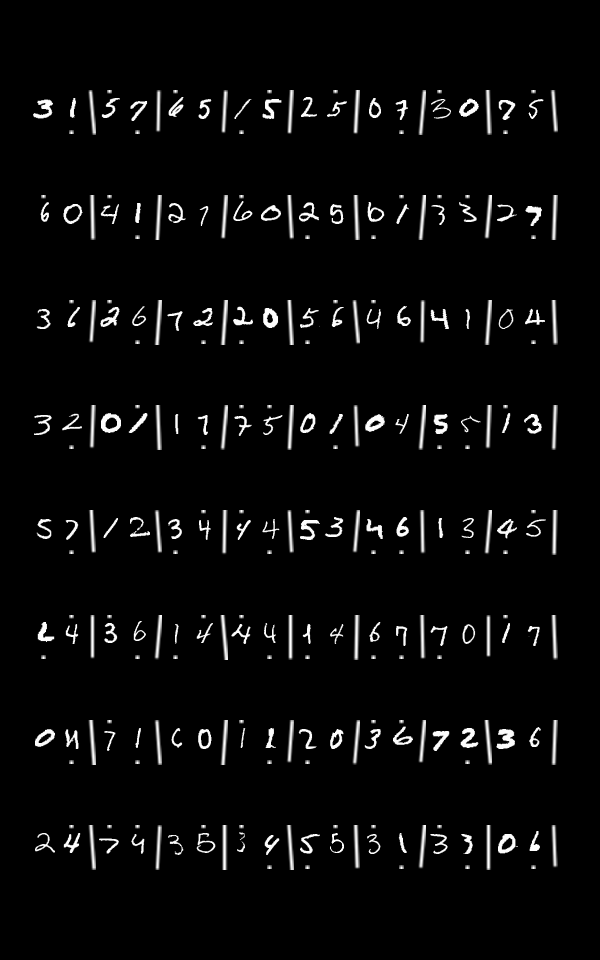 3 1 | 5 7 | 6 5 | 1 5 | 2 5 | 0 7 | 3 0 | 7 5 |
6 0 | 4 1 | 2 7 | 6 0 | 2 5 | 6 1 | 3 3 | 2 7 |
3 6 | 2 6 | 7 2 | 2 0 | 5 6 | 4 6 | 4 1 | 0 4 |
3 2 | 0 1 | 1 7 | 7 5 | 0 1 | 0 4 | 5 5 | 1 3 |
5 7 | 1 2 | 3 4 | 4 4 | 5 3 | 4 6 | 1 3 | 4 5 |
2 4 | 3 6 | 1 4 | 4 4 | 1 4 | 6 7 | 7 0 | 1 7 |
0 4 | 7 1 | 6 0 | 1 1 | 2 0 | 3 6 | 7 2 | 3 6 |
2 4 | 7 4 | 3 5 | 3 4 | 5 5 | 3 1 | 3 3 | 0 6 |